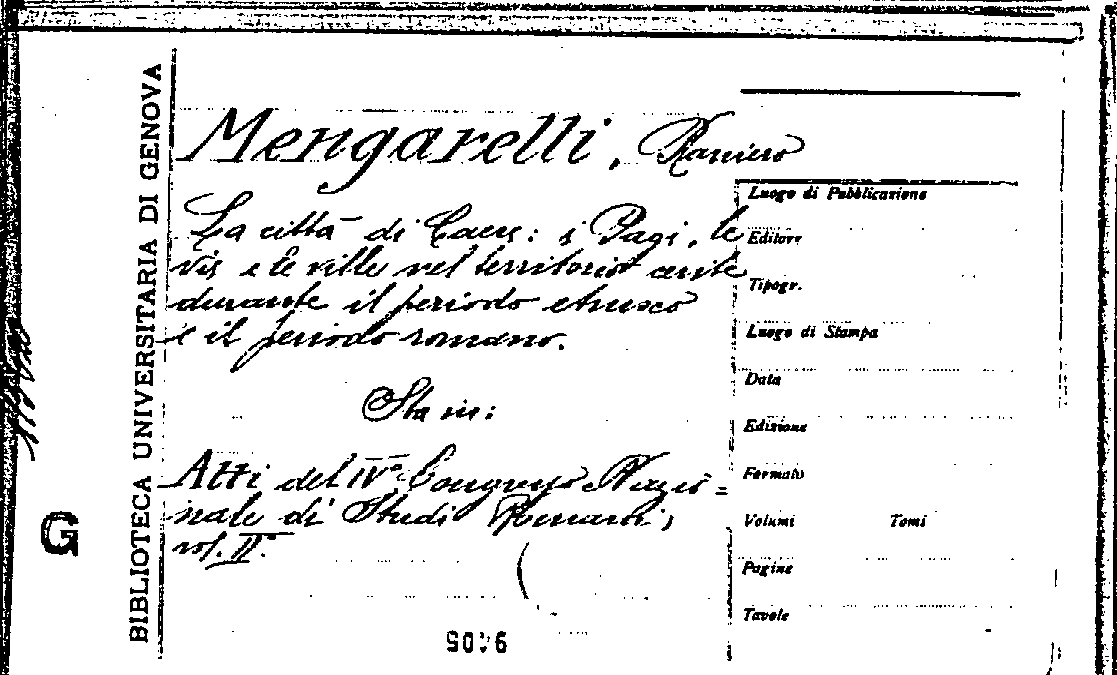 BIBLIOTECA UNIVERSITARIA DI GENOVA
G
Mengarelli, Raniero
La città di Caere: i Pagi, le
vie e le ville nel territorio cerite
durante il periodo etrusco
e il periodo romano.
Sta in:
Atti del IV° Congresso Nazio=
nale di Studi Romani,
vol. II°.
Luogo di Pubblicazione
Editore
Tipogr.
Luogo di Stampa
Data
Edizione
Formato
Volumi Tomi
Pagine
Tavole